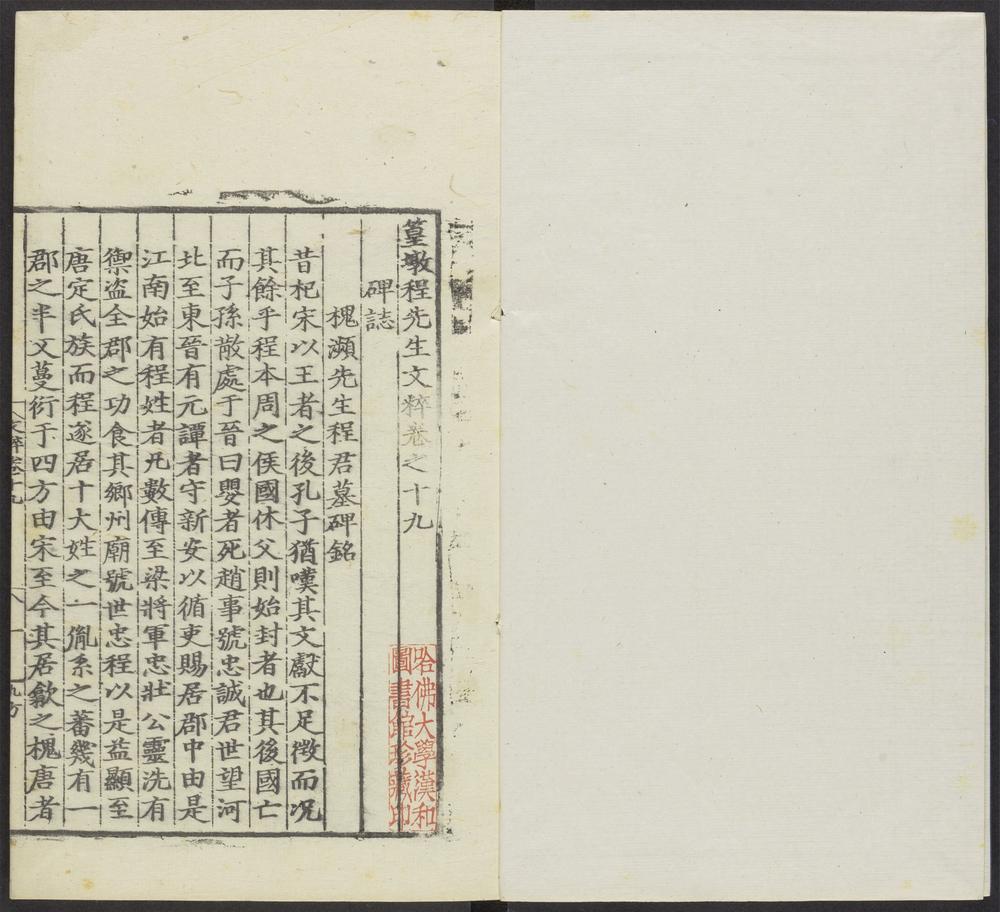 篁墩程先生文粹卷之十九
碑誌
槐濒先生程君墓碑銘
昔杞宋以王者之後孔子猶嘆其文獻不足徵而况
其餘乎程本周之侯國休父則始封者也其後國亡
而子孫散處于晉曰嬰者死趙事號忠誠君世望河
北至東晉有元譚者守新安以循吏賜居郡中由是
江南始有程姓者凡數傳至梁將軍忠壯公靈洗有
禦盗全郡之功食其鄉州廟號世忠程以是益顯至
唐定氏族而程遂居十大姓之一胤系之蕃幾有一
郡之半又蔓衍于四方由宋至今其居歙之槐唐者
文粹卷十九
哈佛大學漢和
圖書館珍藏印